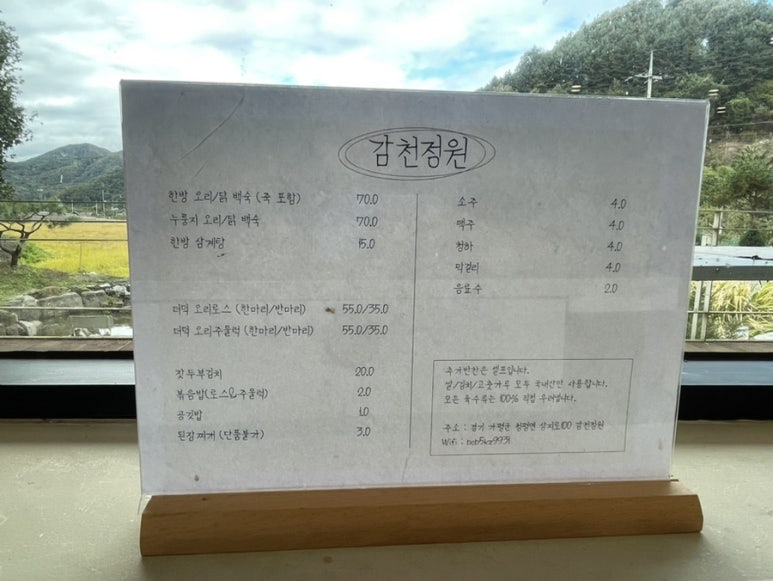 감천정원
한방 오리/닭 백숙 (죽 포함) 70.0
누룽지 오리/닭 백숙 70.0
한방 삼계탕 15.0
더덕 오리로스 (한마리/반마리) 55.0/35.0
더덕 오리주물럭 (한마리/반마리) 55.0/35.0
잣두부김치 20.0
볶음밥(로스&주물럭) 2.0
공깃밥 1.0
된장찌개 (단품불가) 3.0
소주 4.0
맥주 4.0
청하 4.0
막걸리 4.0
음료수 2.0
추가반찬은 셀프입니다.
쌀/김치/고춧가루 모두 국내산만 사용합니다.
모든 육수류는 100% 직접 우려냅니다.
주소 : 경기 가평군 청평면 상지로100 감천정원
Wifi :